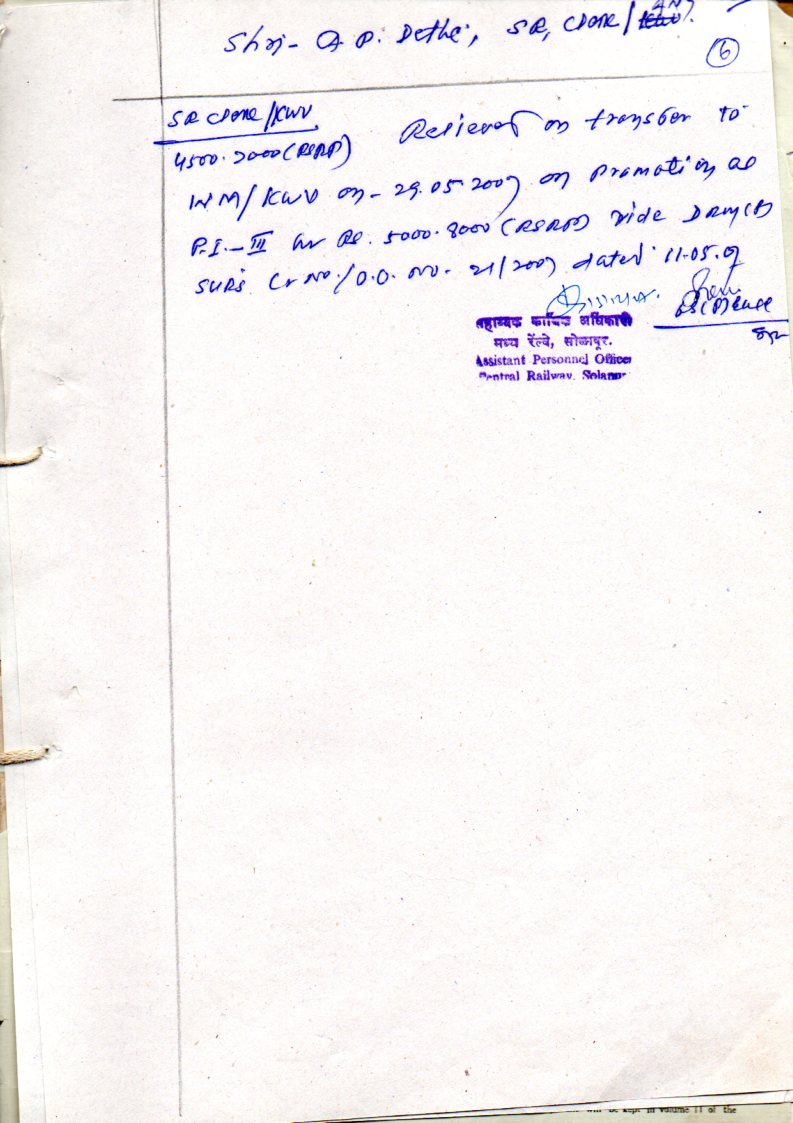 Shri - A. P. Dethe, SR. CDONE / ANG
6
SR CDONE/KWV
4500-7000 (RSRP) Relieved on transfer to
WM/KWV on - 29.05.2007 on promotion as
P.I.-III in Rs. 5000-8000 (RSRP) vide DRM(P)
SUR's Cr No./O.O. No. 21/2007 dated 11.05.07
सहाय्यक कार्मिक अधिकारी
मध्य रेल्वे, सोलापूर.
Assistant Personnel Officer
Central Railway, Solapur
will be kept in volume II of the